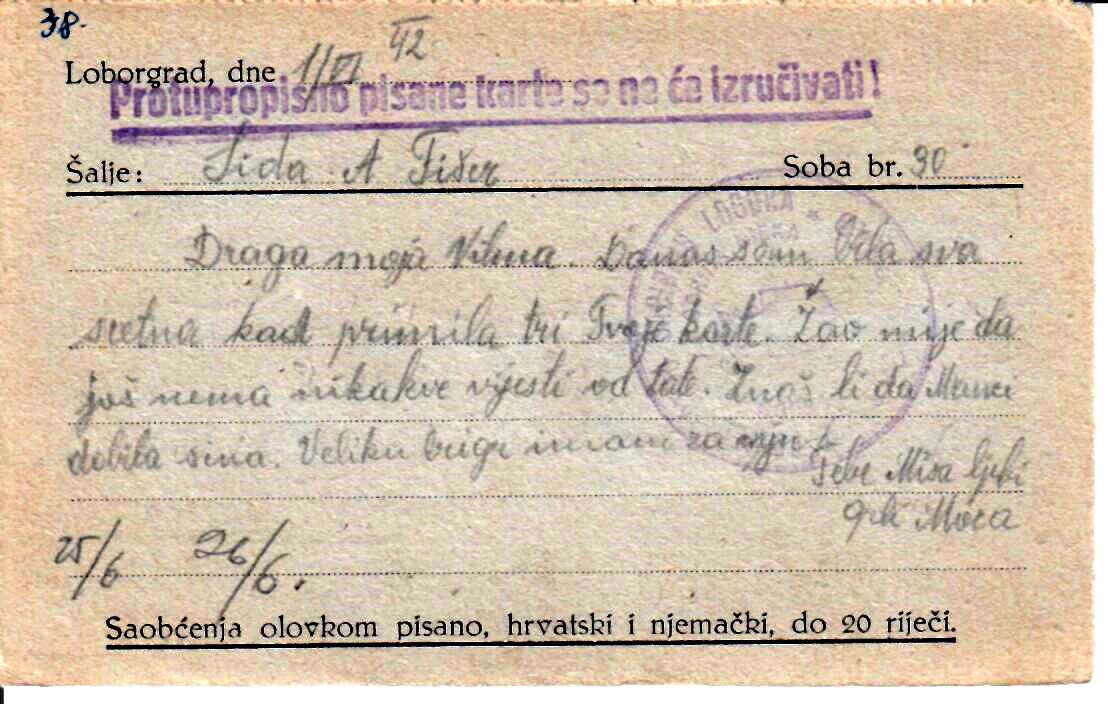 38.
Loborgrad, dne 1/VI 42
Protupropisno pisane karte se ne će izručivati!
Šalje: Lida A Fišer Soba br. 30
Draga moja Vilma. Danas sam bila sva
sretna kad primila tri Tvoje karte. Žao mi je da
još nema nikakve vijesti od tate. Znaš li da Manci
dobila sina. Veliku brigu imam za nju
Tebe Misa ljubi
grli Moca
25/6 26/6.
Saobćenja olovkom pisano, hrvatski i njemački, do 20 riječi.